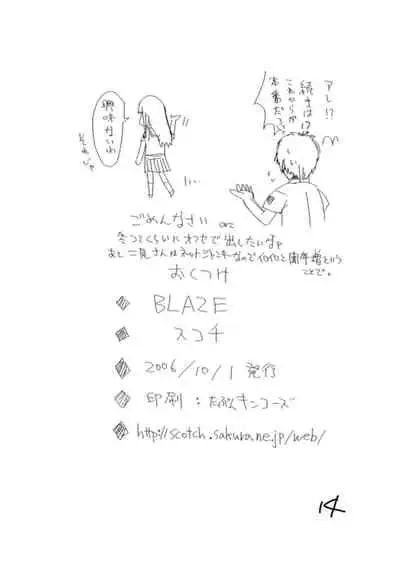 アレ!?
続きは!?
これからが
本番だろ
興味ないわ
それじゃ
ごめんなさい orz
冬コミくらいにオフセで出したいなァ
あと二見さんはネットジャンキーなのでイロイロと耳年増という
ことで。
おくつけ
BLAZE
スコチ
2006/10/1 発行
印刷:たぶんキンコーズ
http://scotch.sakura.ne.jp/web/
14